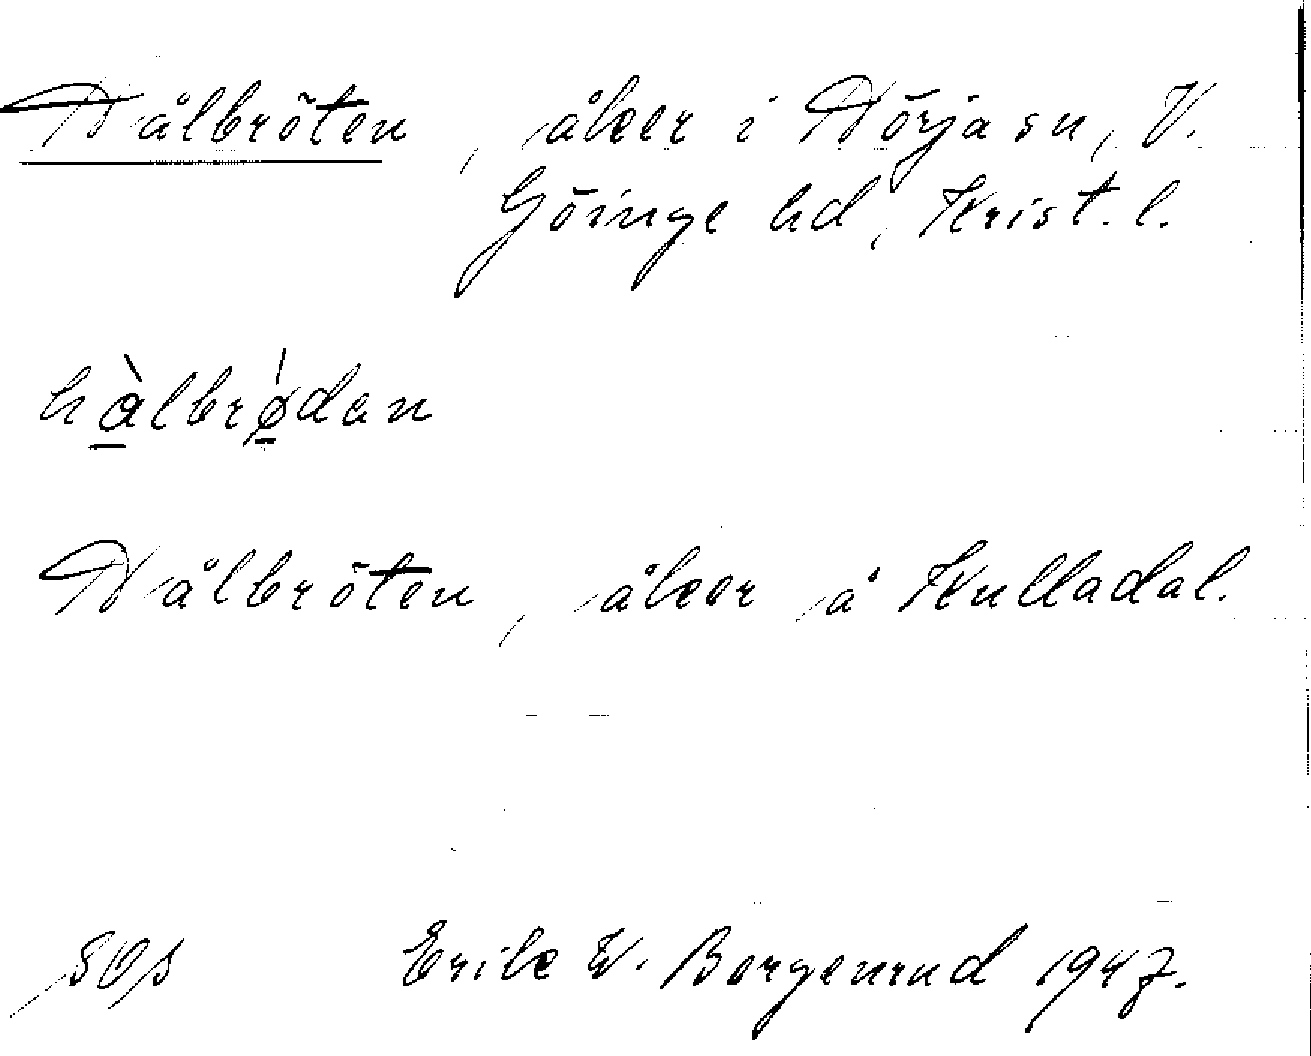 Hålbröten, åker i Hörja sn, V.
Göinge hd, Krist. l.
hàlbrødan
Hålbröten, åker å Kulladal.
Erik W. Borgenrud 1947.